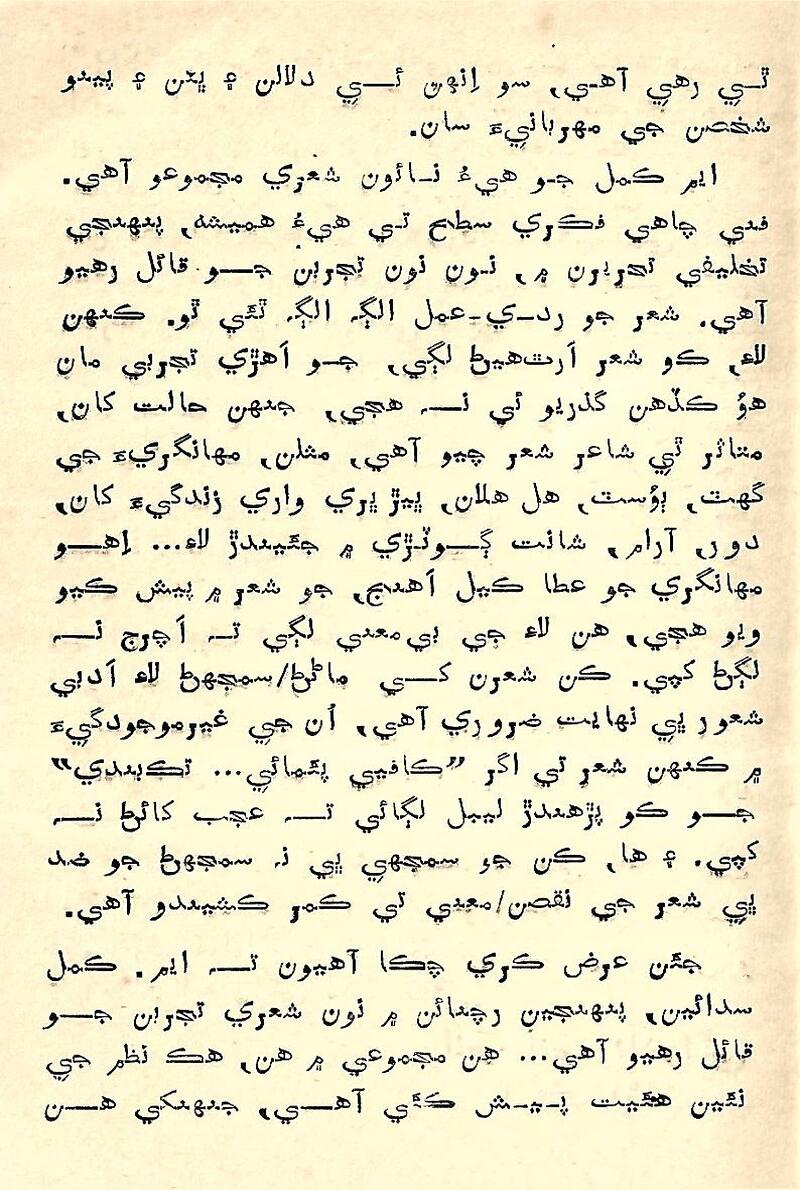 ٿي رهي آهي، سو اِنهن ئي دلالن ۽ ڀٽن ۽ پيدو
شخصن جي مهربانيءَ سان.
ايم ڪمل جو هيءُ نائون شعري مجموعو آهي.
فني چاهي فڪري سطح تي هيءُ هميشه، پنهنجي
تخليقي تحريرن ۾، نون نون تجربن جو قائل رهيو
آهي. شعر جو رد-ي-عمل الڳ الڳ ٿئي ٿو. ڪنهن
لاءِ، ڪو شعر اَرٿهيڻ لڳي، جو اَهڙي تجربي مان
هوُ ڪڏهن گذريو ئي نہ هجي، جنهن حالت کان،
متاثر ٿي شاعر شعر چيو آهي، مثلن، مهانگريءَ جي
گهٽ، ٻوُسٽ، هل هلان، ڀيڙ ڀري واري زندگيءَ کان،
دور، آرام، شانت ڳوٺڙي ۾ جئيندڙ لاءِ... اِهو
مهانگري جو عطا ڪيل اَهنج، جو شعر ۾ پيش ڪيو
ويو هجي، هن لاءِ جي بي‌معنيٰ لڳي تہ اَچرج نہ
لڳڻ کپي. ڪن شعرن کي ماڻڻ/سمجهڻ لاءِ اَدبي
شعور ڀي نهايت ضروري آهي، اُن جي غيرموجودگيءَ
۾ ڪنهن شعر تي اگر ”ڪافيي پئمائي... تڪبندي“
جو ڪو پڙهندڙ ليبل لڳائي تہ عجب کائڻ نہ
کپي. ۽ ها، ڪن جو سمجهي ڀي نہ سمجهڻ جو ضد
ڀي شعر جي نقصن/معني تي ڪمر ڪشيندو آهي.
جئن عرض ڪري چڪا آهيون تہ ايم. ڪمل
سدائين، پنهنجين رچنائن ۾ نون شعري تجربن جو
قائل رهيو آهي... هن مجموعي ۾ هن، هڪ نظم جي
نئين هئيت پيش ڪئي آهي، جنهنکي هن